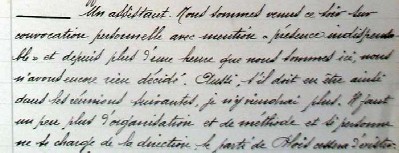 Un assistant. Nous sommes venus ce soir sur
convocation personnelle avec mention "présence indispensa-
ble" et depuis plus d'une heure que nous sommes ici, nous
n'avons encore rien décidé. Aussi s'il doit en être ainsi
dans les réunions suivantes, je n'y viendrai plus. Il faut
un peu plus d'organisation et de méthode et si personne
ne se charge de la direction le parti de Blois cessera d'exister.